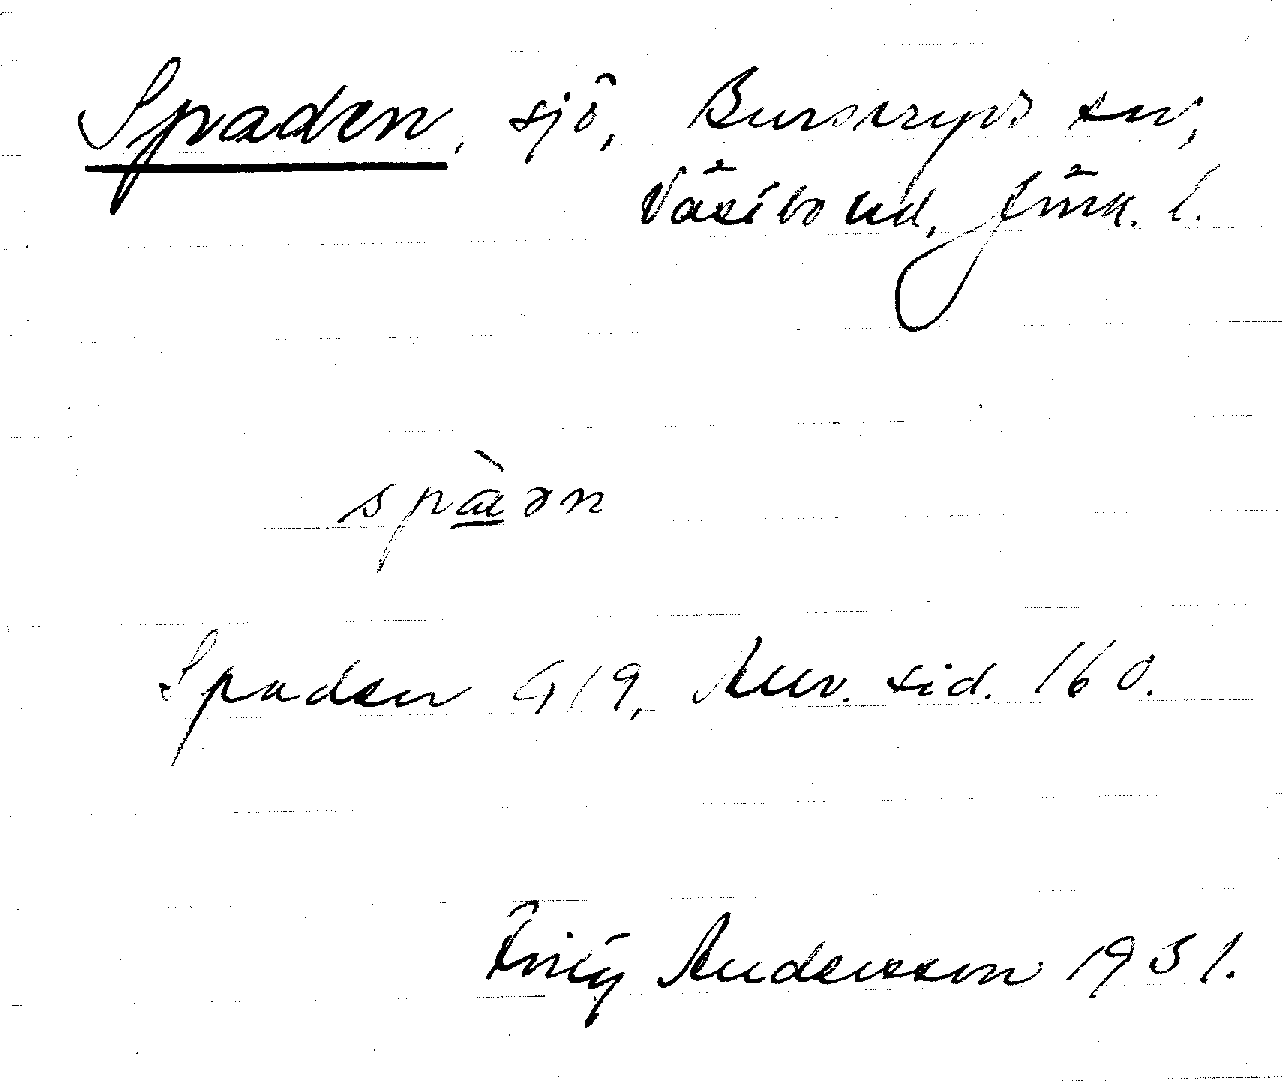 Spaden, sjö, Burseryds sn,
Västbo hd, Jönk. l.
spæ̀ən
Spaden G19, Anv. sid. 160.
Fritz Andersson 1931.